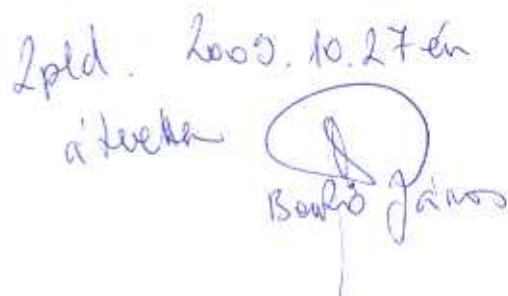 2pld. 2009. 10.27-én
átvettem
János